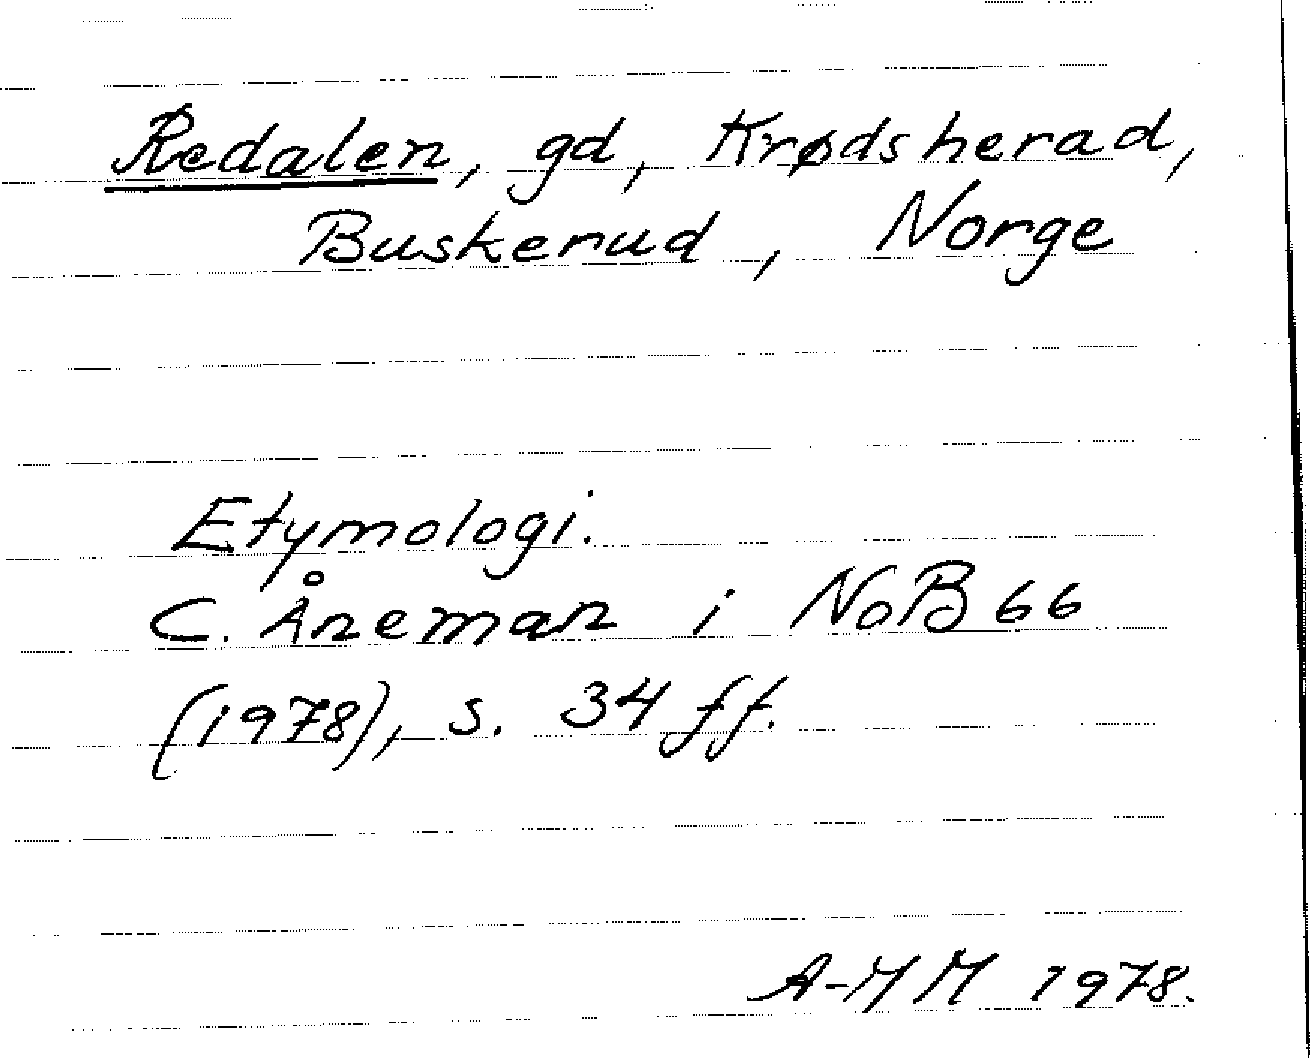 Redalen, gd, Krødsherad,
Buskerud, Norge
Etymologi.
C. Åneman i NoB 66
(1978), s. 34 ff.
A-MM 1978.